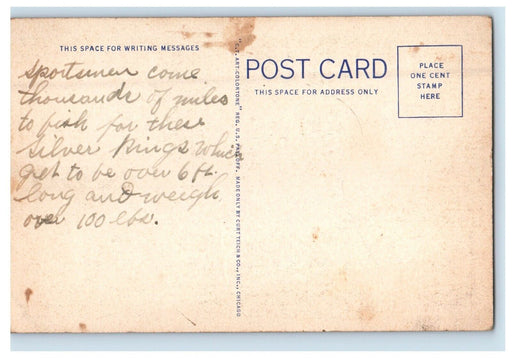 THIS SPACE FOR WRITING MESSAGES
sportsmen come
thousands of miles
to fish for these
silver Kings which
get to be over 6 ft.
long and weigh
over 100 lbs.
"C.T. ART-COLORTONE" REG. U.S. PAT. OFF. MADE ONLY BY CURT TEICH & CO., INC., CHICAGO
POST CARD
THIS SPACE FOR ADDRESS ONLY
PLACE
ONE CENT
STAMP
HERE